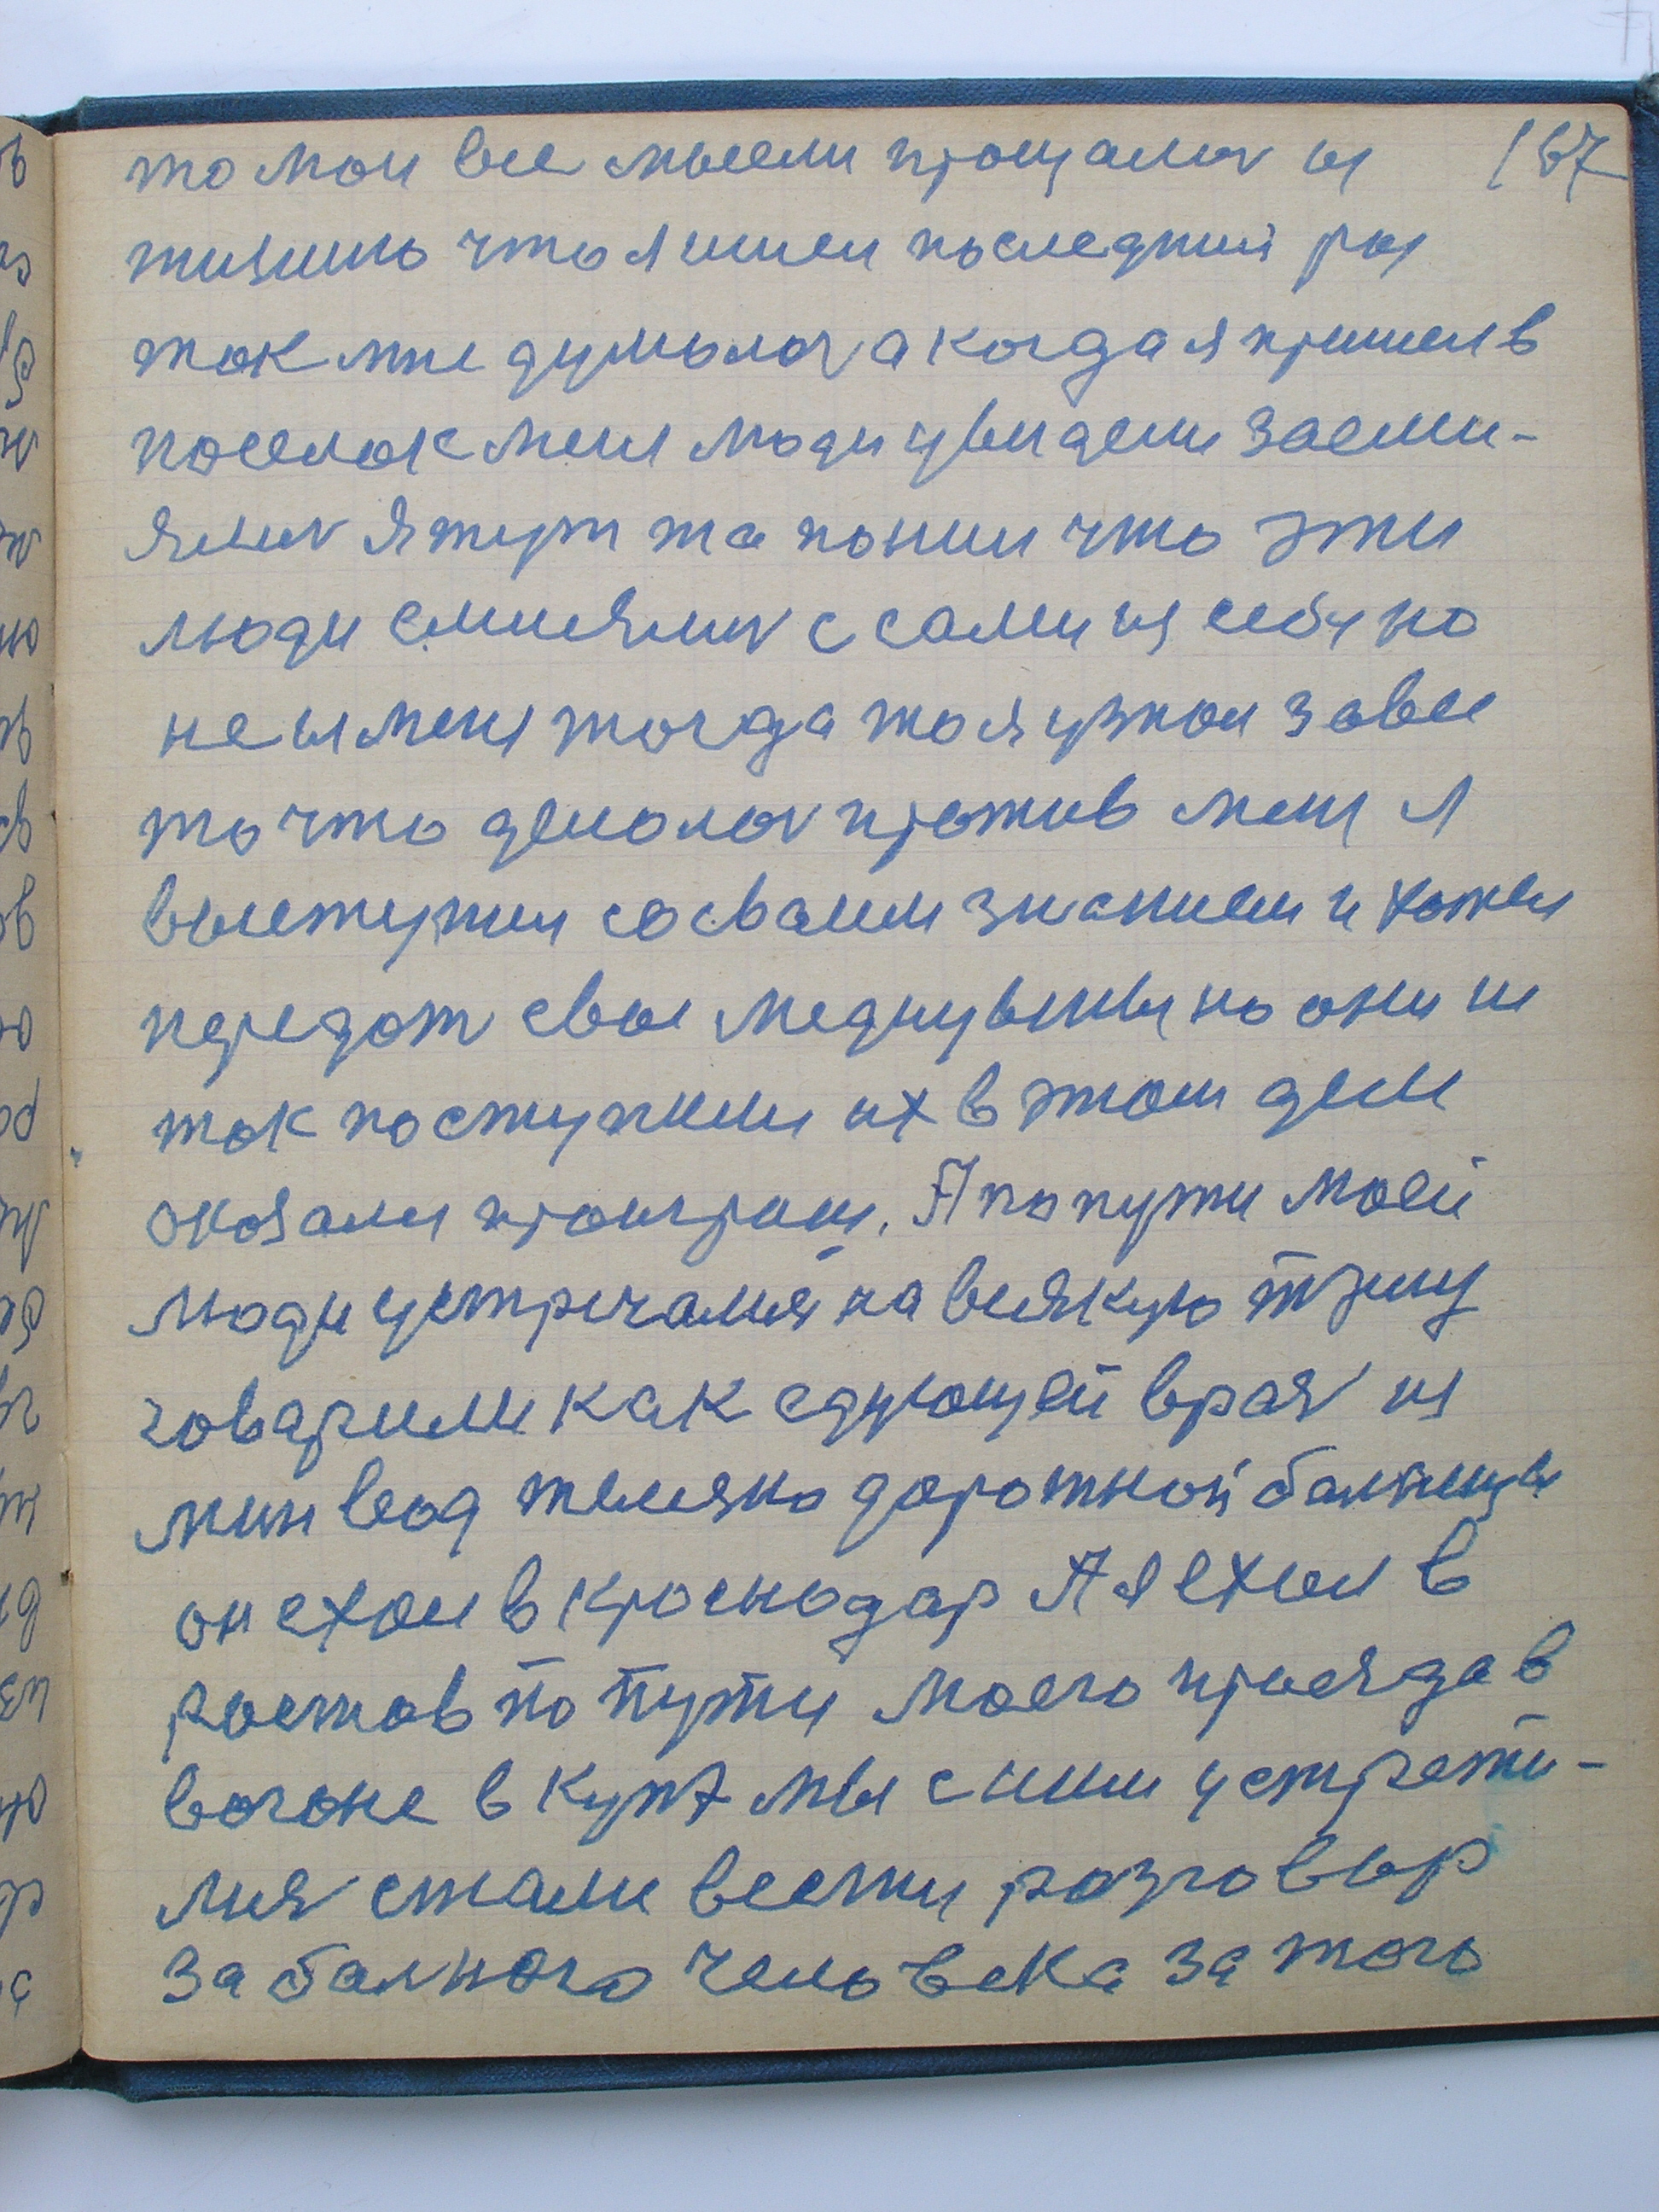 то мои все мысли прощались и 167
тизинь что я ишел последний раз
ток мне думолось а когда я пришел в
поселок меня люди увидели засми-
ялись я тут жа понил что эти
люди смиялись с сами из себя но
не из меня тогда то я узнол за все
то что делолось против меня я
выступил со сваим знанием и хотел
передоть свое медицынцы но они не
ток поступили их в этом деле
оказался проигриш. А по пути моей
люди устричался на всякую тэму
говарили как едующей врач из
мин вод желизно дорожной бальницы
он ехол в Кроснодар А я ехол в
ростов по пути моего приезда в
вогоне в купэ мы с ним устрети-
лись стали вести розговор
за бального человека за того